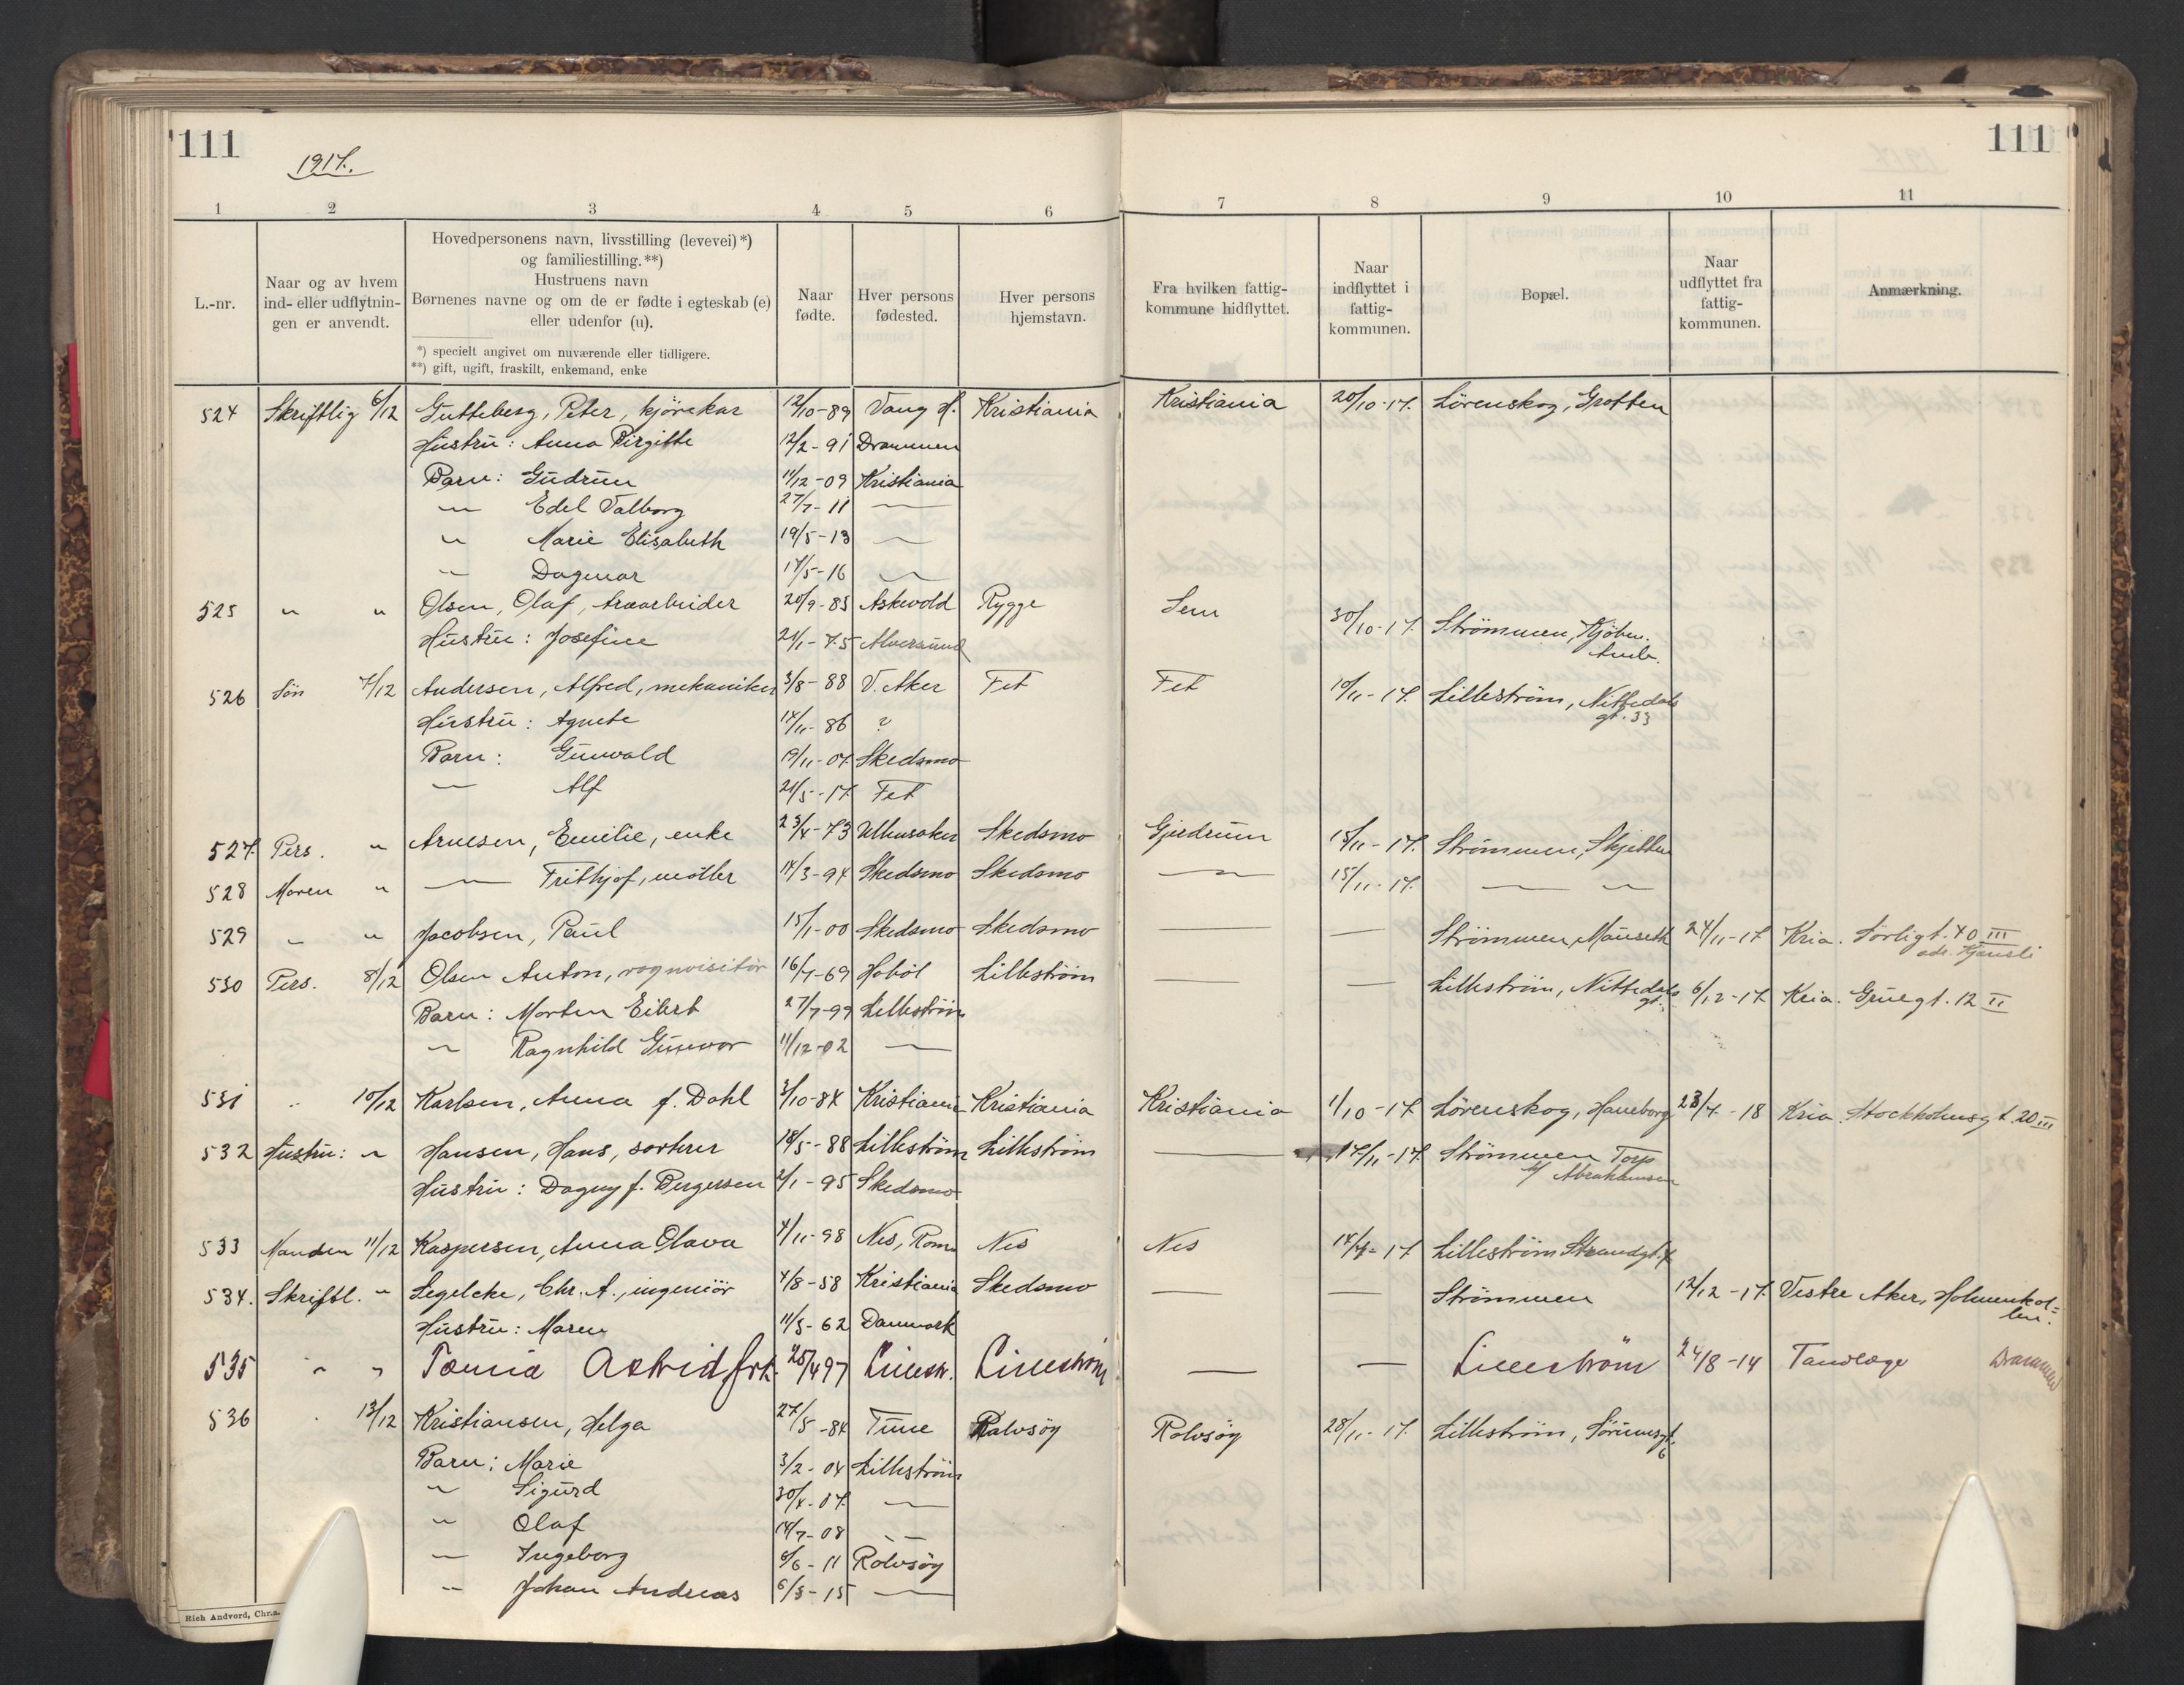 111
111
1917.
1 2 3 4 5 6 7 8 9 10 11
L.-nr.
Naar og av hvem ind- eller udflytningen er anvendt.
Hovedpersonens navn, livsstilling (levevei) *)
og familiestilling. **)
Hustruens navn
Børnenes navne og om de er fødte i egteskab (e)
eller udenfor (u).
*) specielt angivet om nuværende eller tidligere.
**) gift, ugift, fraskilt, enkemand, enke
Naar fødte.
Hver persons fødested.
Hver persons hjemstavn.
Fra hvilken fattigkommune hidflyttet.
Naar indflyttet i fattigkommunen.
Bopæl.
Naar udflyttet fra fattigkommunen.
Anmærkning.
524 Skriftlig 6/12 Gutteberg, Peter, kjørekar 12/10-89 Vang H. Kristiania Kristiania 20/10-17. Lörenskog, Grotten
Hustru: Anna Birgitte 12/2-91 Drammen
Barn: Gudrun 11/12-09 Kristiania
" Edel Valborg 27/7-11 —
" Marie Elisabeth 19/5-13 —
" Dagmar 17/5-16 —
525 " " Olsen, Olaf, 20/9-85 Askevold Rygge Sem 30/10-17. Strömmen, Kjöben.
Hustru: Josefine 21/1-75 Alversund
526 Søn 7/12 Andersen, Alfred, mekaniker 3/8-88 V. Aker Fet Fet 10/11-17. Lilleström, Nittedals
gt. 33
Hustru: Agnete 14/11-86 ?
Barn: Gunvald 19/11-07 Skedsmo
— Alf 21/5-17 Fet
527. Pers. " Arnesen, Emilie, enke 23/4-73 Ullensaker Skedsmo Gjerdrum 15/11-17. Strömmen, Skjetten
528 Moren " — Frithjof, möller 14/3-94 Skedsmo Skedsmo — 15/11-17. — —
529 " " Jacobsen, Paul 15/1-00 Skedsmo Skedsmo — — Strömmen, Mauseth 24/11-17 Kria. Sorligt. 40 III
530 Pers. 8/12 Olsen Anton, vognvisitör 16/7-69 Hobøl Lilleström — — Lilleström, Nittedals gt. 6/12-17. Kria. Gruegt. 12 II
Barn: Morten Eilert 27/7-99 Lilleström
" Ragnhild Gunvor 11/12-02 —
531 " 10/12 Karlsen, Anna f. Dahl 3/10-84 Kristiania Kristiania Kristiania 1/10-17. Lörenskog, Haneborg 23/4-18 Kria. Stockholmsgt. 20 III
532 Hustru: " Hansen, Hans, sorterer 18/5-88 Lilleström Lilleström — 17/11-17. Strömmen Torp
v/ Abrahamsen
Hustru: Dagny f. Bergersen 2/1-95 Skedsmo
533 Manden 11/12 Kaspersen, Anna Olava 4/11-98 Nes, Rom. Nes Nes Lilleström Strandgt.
534. Skriftl. " Segelcke, Chr. A., ingeniör 4/8-58 Kristiania Skedsmo — — Strömmen 12/12-17. Vestre Aker, Holmenkol=
len.
Hustru: Maren 11/5-62 Danmark
535 " " Astrid frk. 25/4 97 Lillestr. Lilleström — — Lilleström 24/8-14 Tandlæge Drammen
536 " 13/12 Kristiansen, Helga 27/5-84 Tune Rolvsöy Rolvsöy 28/11-17. Lilleström, Sörumsgt.
6
Barn: Marie 3/2-04 Lilleström
" Sigurd 30/4-07. —
" Olaf 14/7-08 —
— Ingeborg 8/6-11 Rolvsöy
" Johan Andreas 6/3-15 —
Rich Andvord, Chr.a.